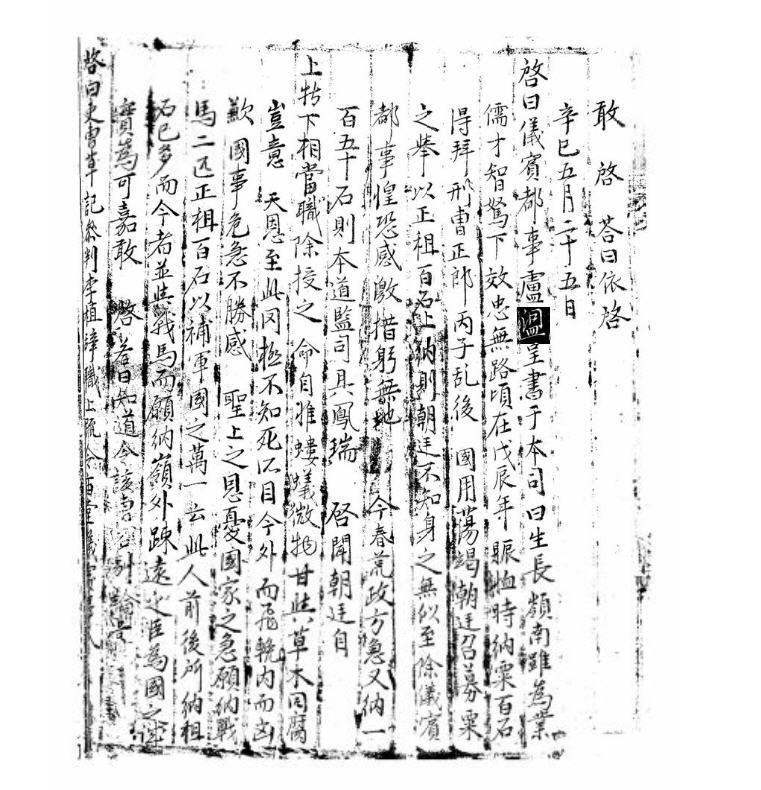 敢 啓 答曰依啓
辛巳五月二十五日
啓曰儀賓都事盧溫呈書于本司曰生長嶺南雖爲業
儒才智駑下效忠無路頃在戊辰年賑恤時納粟百石
得拜刑曹正郎丙子乱後 國用蕩竭朝廷召募粟
之擧以正租百石上納則朝廷不知身之無似至除儀賓
都事惶恐感激措躬無地 今春荒政方急又納一
百五十石則本道監司具鳳瑞 啓聞朝廷自
上特下相當職除授之 命自惟螻蟻微物甘與草木同腐
豈意 天恩至此罔極不知死所目今外 而飛輓內而
歉 國事危急不勝感 聖上之恩憂國家之急願納戰
馬二匹正租百石以補軍國之萬一云此人前後所納租
石已多而今者並與戰馬而願納嶺外踈遠之臣爲國之誠
實爲可嘉敢 啓答曰知道令該曹
啓曰吏曹草記參判李植辭職上疏